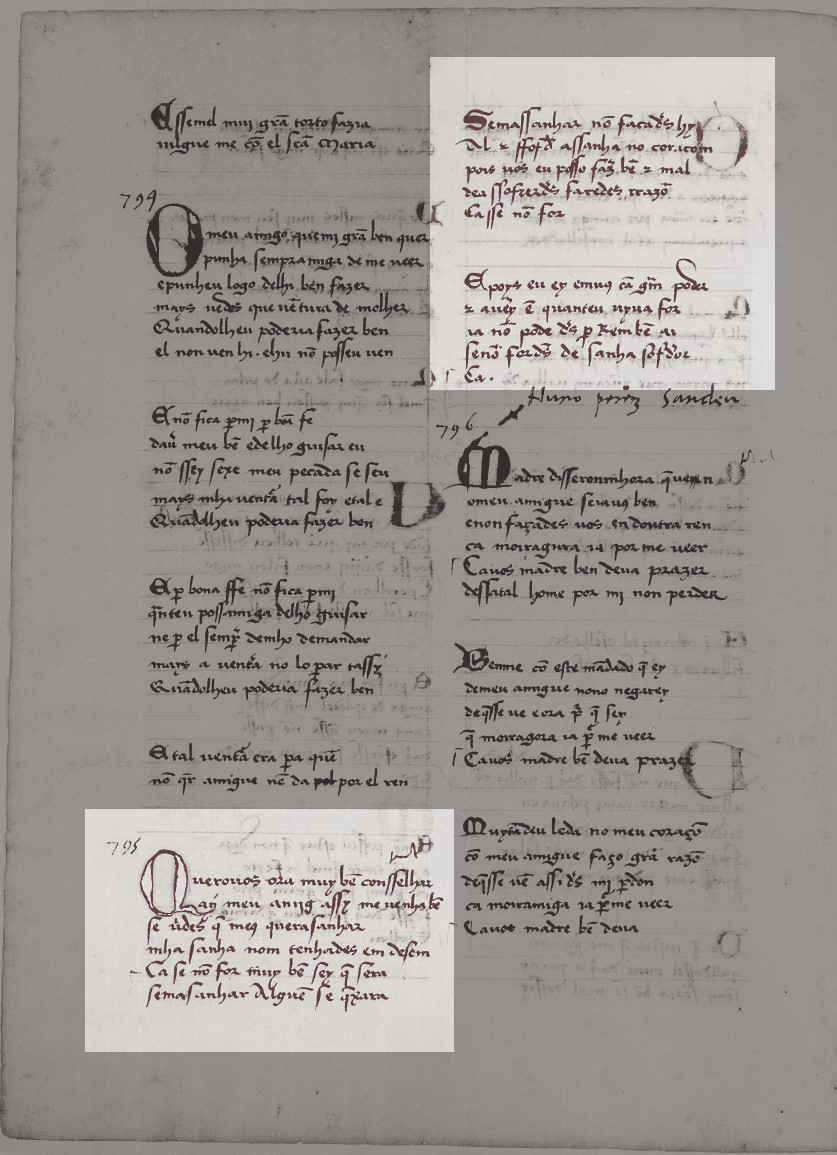 E ssemel mui grã torto fazia
migue me cõ el scã Maria
794
O meu amigo que mi grã ben quer
punha sempramiga de me veer
epunheu logo delhi ben fazer
mays vedes que vẽtura de molher
Quandolheu poderia fazer ben
el non ven hi. ehu nõ posseu ven
E nõ fica p̱mi p̱ bõa fe
dau͛ meu bẽ edelho guisar eu
nõ ssey sexe meu pecada se seu
mays mha ventã tal foy etal e
Quãdolheu poderia fazer ben
E p̱ bona ffe nõ fica p̱mi
q̃nteu possamiga delhõ guisar
ne p̱ el semp̃ demho demandar
mays a ventã no lo p̱ar tassy
Quãdolheu poderia fazer ben
E tal ventã era p̱a quẽ
nõ q̃r amigue nẽ da por el ren
795
Querovos ora muy bẽ consselhar
ay meu amig assy me venha bẽ
se u͛des q̃ meq̃ querasanhar
mha sanha nom tenhades em desem
Ca se nõ for muy bẽ sey q̃ sera
semasanhar Alguẽ se q̃xara
Semassanhar nõ facad̃s hy
Al ⁊ ssofrd̃ assanha no coraçom
pois uos eu posso faz̃ bẽ ⁊ mal
dea ssofrerd̃s faredes rrazõ
Ca sse nõ for
E poys eu ey emuq cã grã poder
⁊ auẽy ẽ quanteu uyua for
ia nõ pode d̃s p̱ Rem bẽ ar
senõ ford̃s de sanha sofrd̃or
Ca.
Nuno perez Sandeu
796
Madre disseronmhora q̃ven
omeu amigue seiavus ben
enon façades uos en doutra ren
ca moiragura ia por me veer
Cauos madre ben deva prazer
dessatal home por mi non perder
Beme cõ este mãdado q̃ ey
demeu amigue nono negarey
deq̃sse ve e ora p̃ q̃ sey
q̃ moiragora ia p̱ me veer
Cauos madre bẽ deva prazer
Muytãdeu leda no meu coraçõ
cõ meu amigue faço grã razõ
deq̃sse vẽ assi d̃s mi p̱don
ca moiramiga ia p̱ me veer
Cauos madre bẽ deva